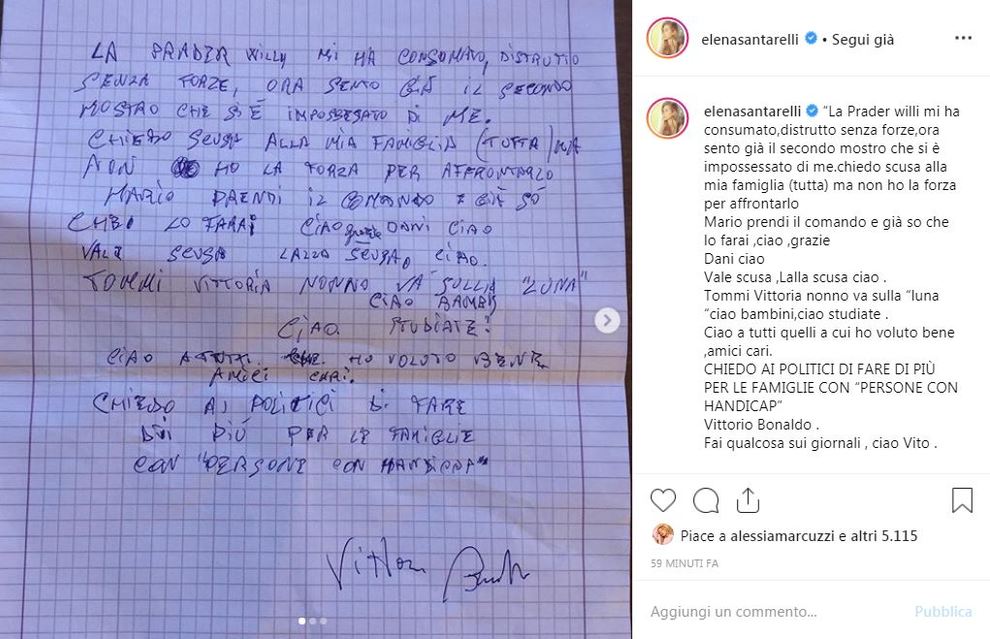 LA PRADER Willy MI HA CONSUMATO, DISTRUTTO
SENZA FORZE, ORA SENTO GIÀ IL SECONDO
MOSTRO CHE SI È IMPOSSESSATO DI ME.
CHIEDO SCUSA ALLA MIA FAMIGLIA (TUTTA) MA
NON HO LA FORZA PER AFFRONTARLO
MARIO PRENDI IL COMANDO E GIÀ SO
CHE LO FARAI CIAO grazie DANI CIAO
VALE SCUSA LALLA SCUSA, CIAO.
TOMMI VITTORIA NONNO VA SULLA "LUNA"
CIAO BAMBINI
CIAO. STUDIATE!
CIAO A TUTTI. CHE. HO VOLUTO BENE
AMICI CARI.
CHIEDO AI POLITICI DI FARE
DI PIÙ PER LE FAMIGLIE
CON "PERSONE CON HANDICAP"
elenasantarelli • Segui già
elenasantarelli "La Prader willi mi ha
consumato,distrutto senza forze,ora
sento già il secondo mostro che si è
impossessato di me.chiedo scusa alla
mia famiglia (tutta) ma non ho la forza
per affrontarlo
Mario prendi il comando e già so che
lo farai ,ciao ,grazie
Dani ciao
Vale scusa ,Lalla scusa ciao .
Tommi Vittoria nonno va sulla "luna
"ciao bambini,ciao studiate .
Ciao a tutti quelli a cui ho voluto bene
,amici cari.
CHIEDO AI POLITICI DI FARE DI PIÙ
PER LE FAMIGLIE CON "PERSONE CON
HANDICAP"
Vittorio Bonaldo .
Fai qualcosa sui giornali , ciao Vito .
Piace a alessiamarcuzzi e altri 5.115
59 MINUTI FA
Aggiungi un commento... Pubblica